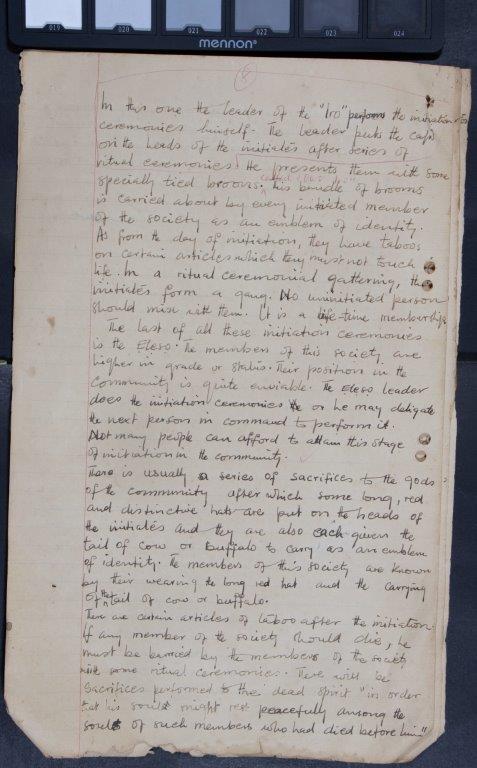 019 020 021 022 023 024
mennon®
8
In this one the leader of the "Iro" performs the initiation
ceremonies himself. The leader puts the caps
on the heads of the initiates after series of
ritual ceremonies. He presents them with some
specially tied brooms. This bundle of brooms
is carried about by every initiated member
of the society as an emblem of identity.
As from the day of initiation, they have taboos
on certain articles which they must not touch
life. In a ritual ceremonial gathering, the
initiates form a gang. No uninitiated person
should mix with them. It is a life-time membership.
The last of all these initiation ceremonies
is the Eleso. The members of this society are
higher in grade or status. Their position in the
community is quite enviable. The Eleso leader
does the initiation ceremonies or he may deligate
the next person in command to perform it.
Not many people can afford to attain this stage
of initiation in the community.
There is usually a series of sacrifices to the gods
of the community after which some long, red
and distinctive hats are put on the heads of
the initiates and they are also each given the
tail of cow or buffalo to carry as an emblem
of identity. The members of this society are known
by their wearing the long red hat and the carrying
of the tail of cow or buffalo.
There are certain articles of taboo after the initiation.
If any member of the society should die, he
must be burried by the members of the society
with some ritual ceremonies. There will be
sacrifices performed to the dead spirit "in order
that his soul might rest peacefully among the
souls of such members who had died before him"